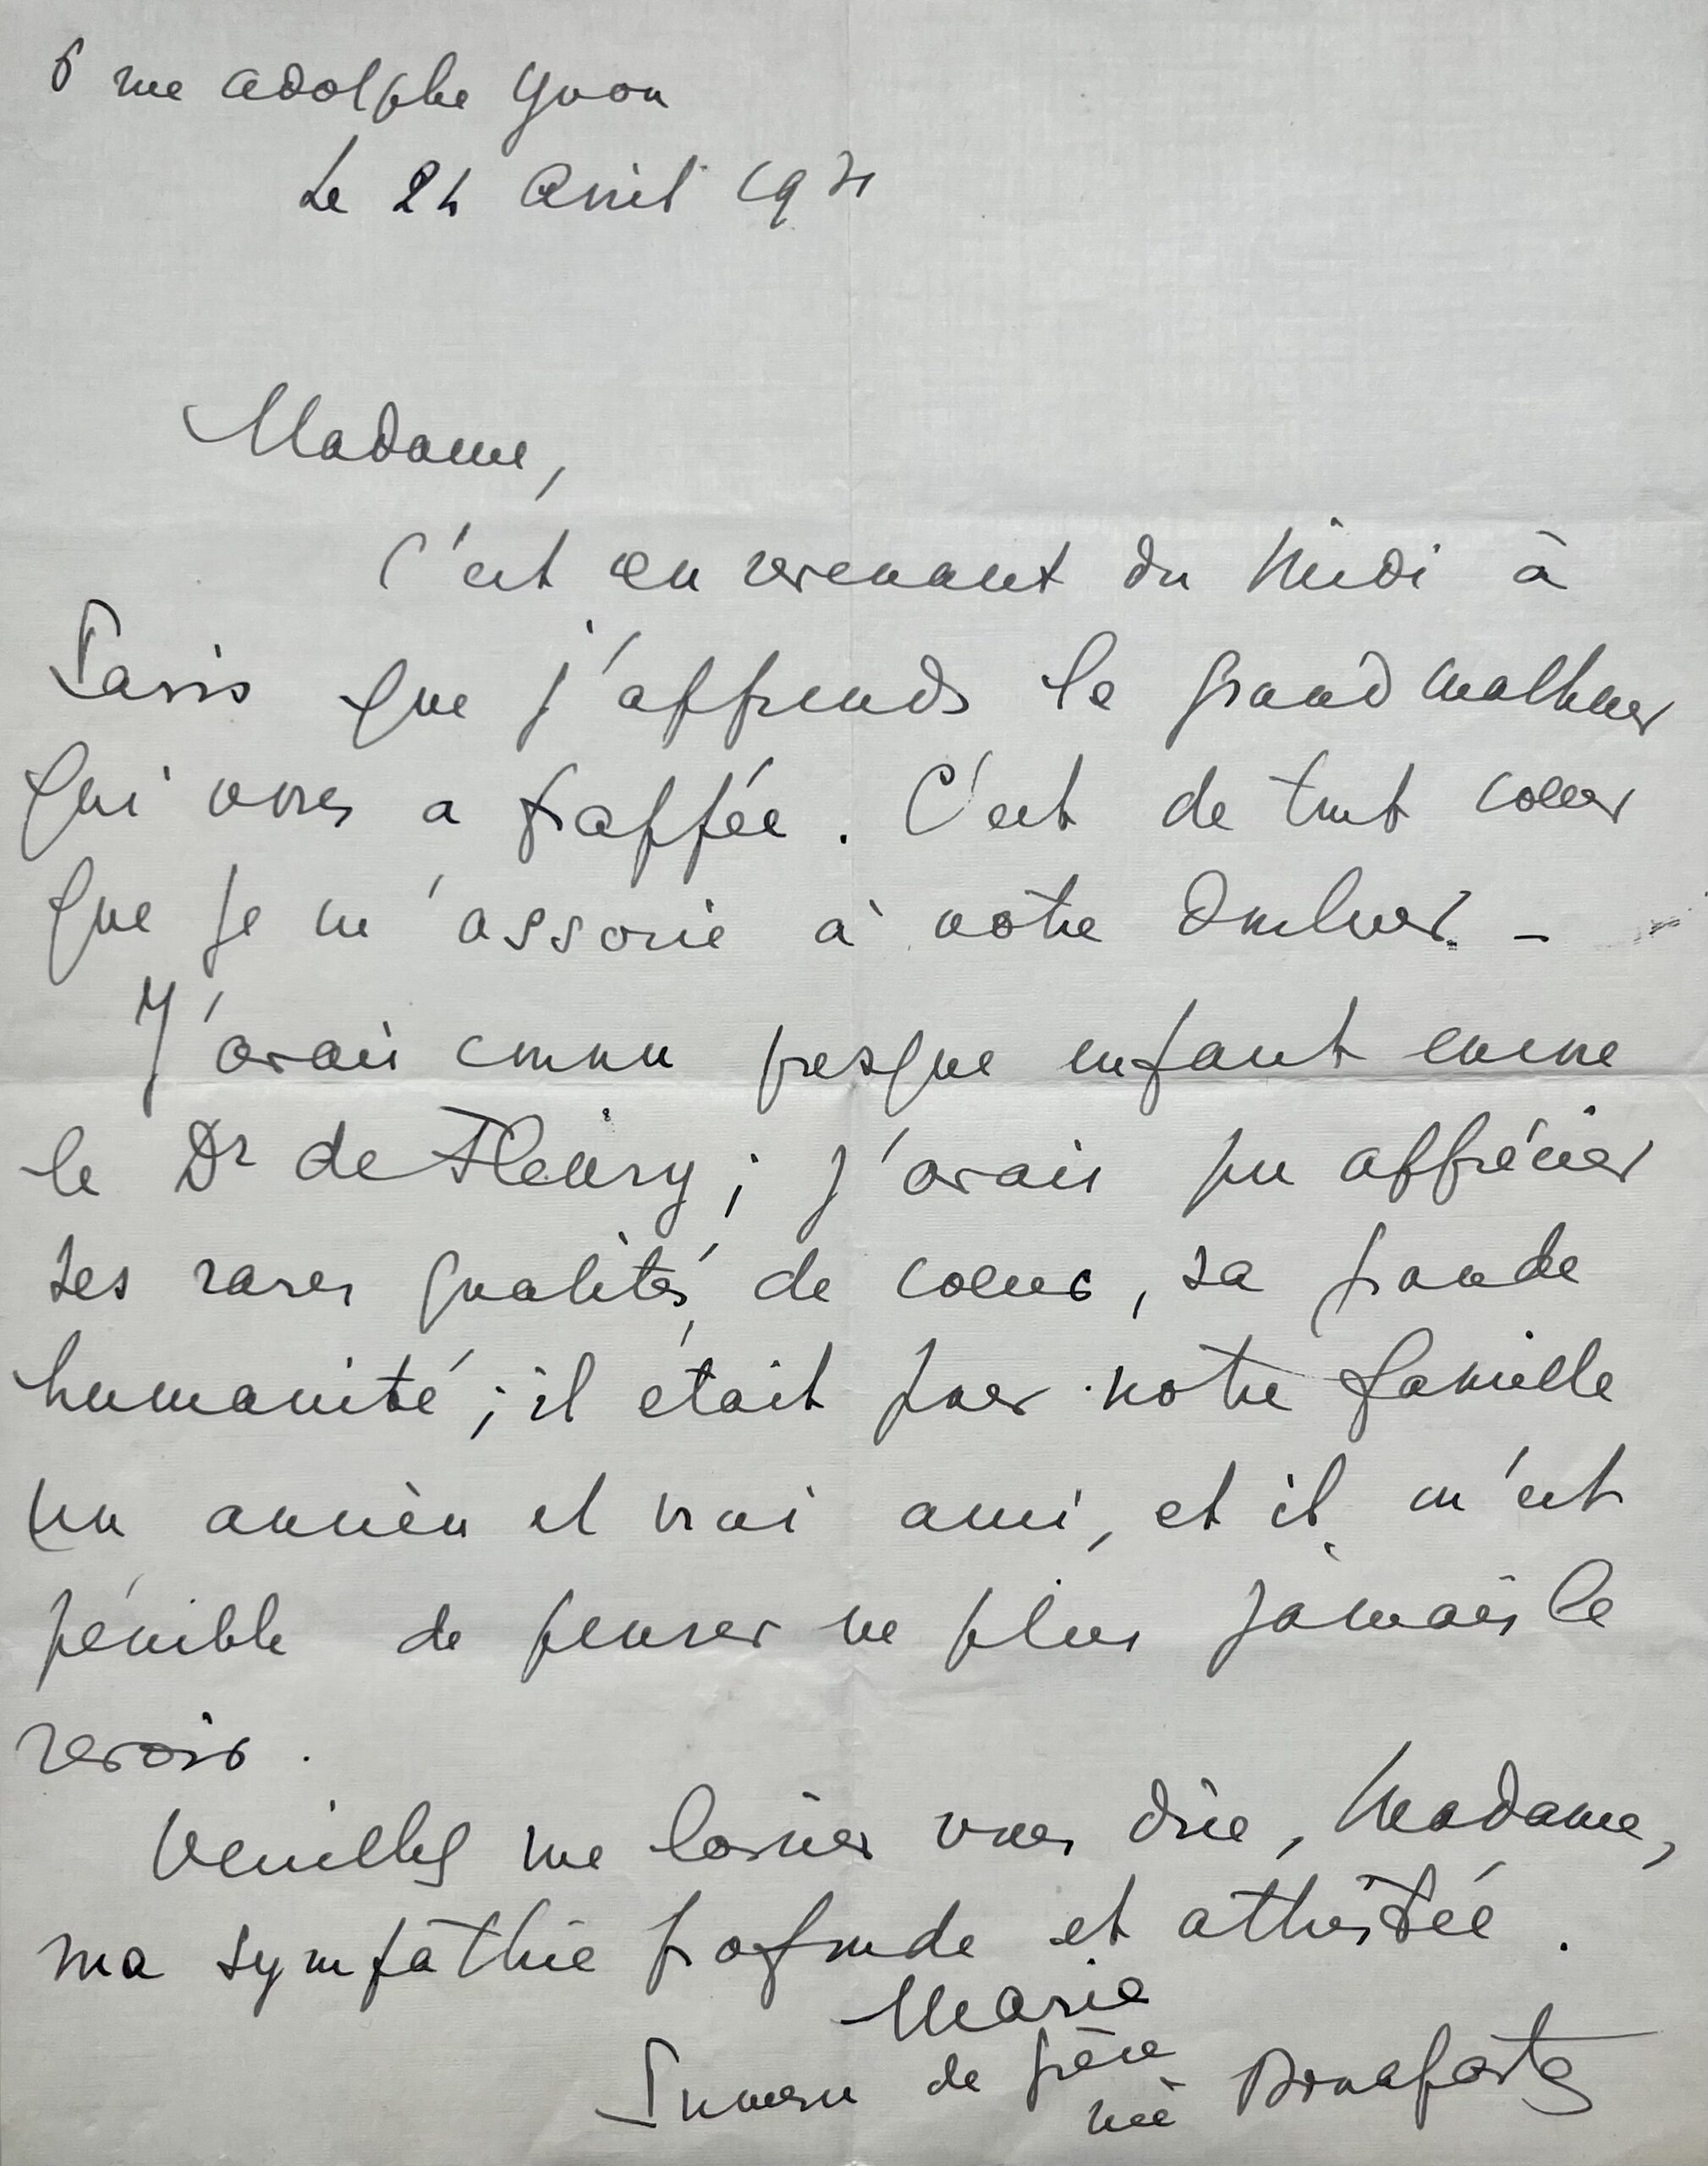 6 rue Adolphe Yvon
Le 24 Avril 1931
Madame,
C'est en revenant du Midi à
Paris que j'apprends le grand malheur
qui vous a frappée. C'est de tout coeur
que je m'associe à votre douleur. –
J'avais connu presque enfant encore
le Dr de Fleury ; j'avais pu apprécier
ses rares qualités de coeur, sa grande
humanité ; il était pour notre famille
un ancien et vrai ami, et il m'est
pénible de penser ne plus jamais le
revoir.
Veuillez me laisser vous dire, Madame,
ma sympathie profonde et attristée.
Marie
Princesse de Grèce
née Bonaparte